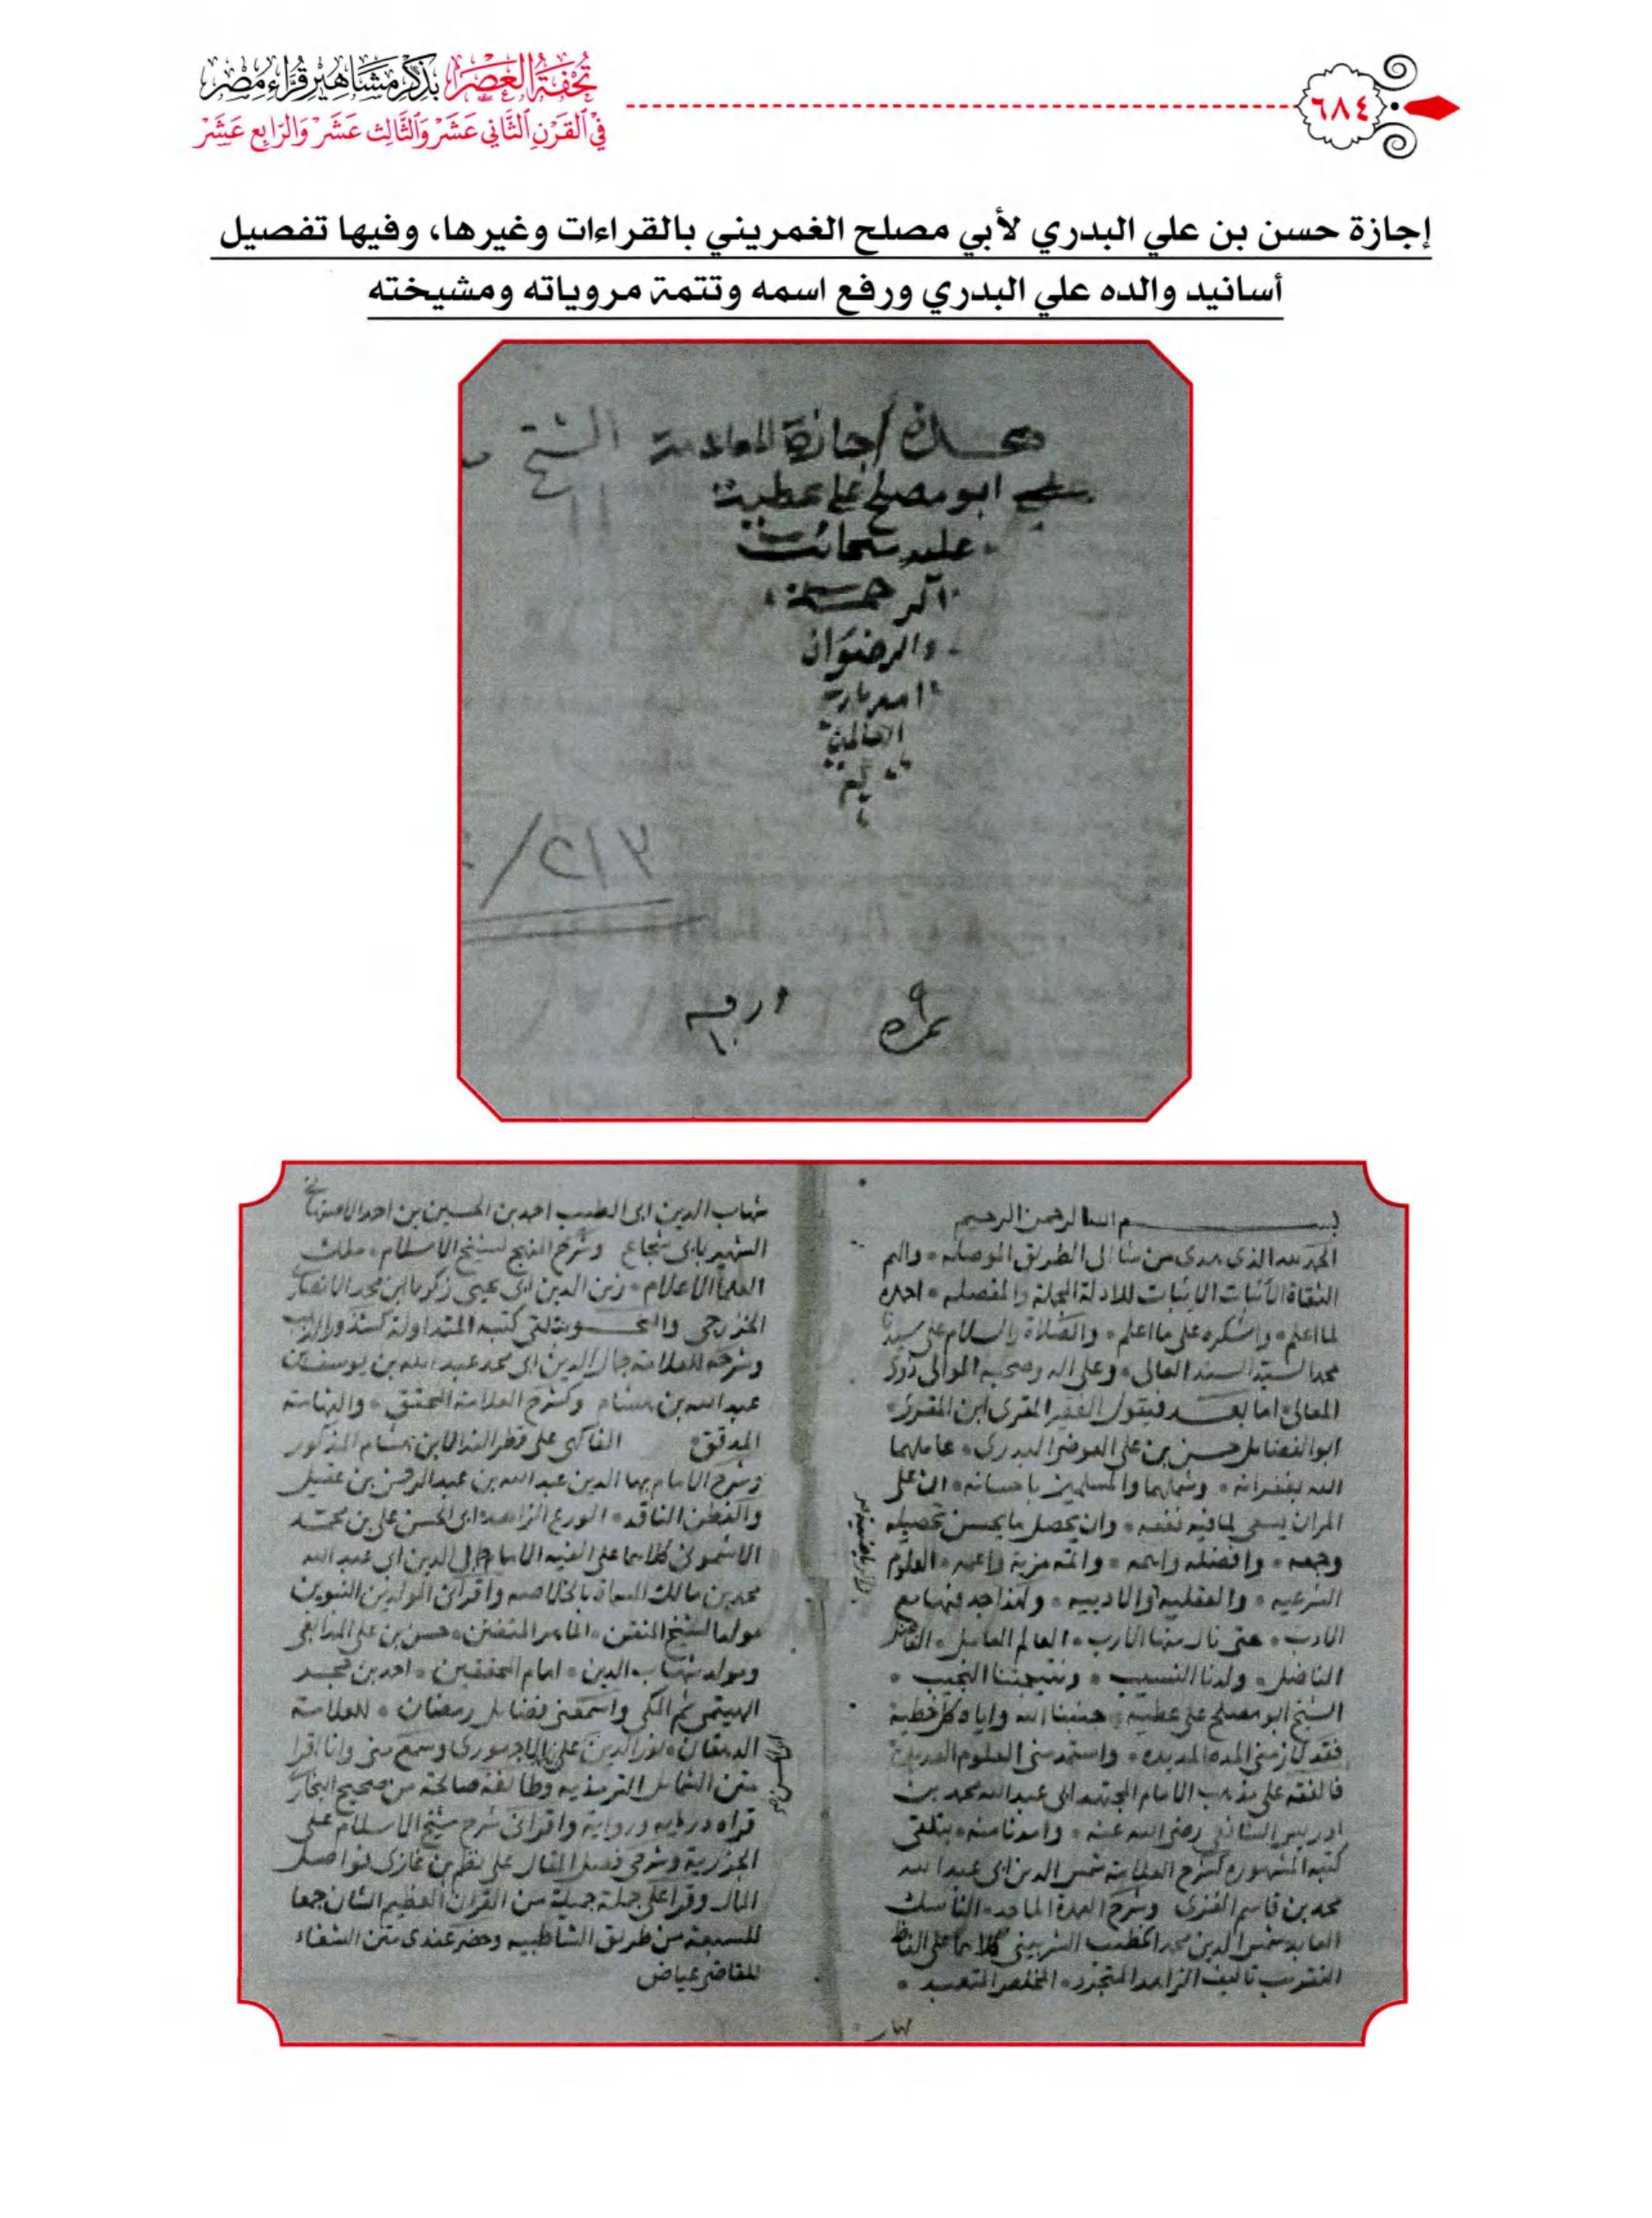 تُحْفَةُ العَصْرِ بِذِكْرِ مَشَاهِيرِ قُرَّاءِ مِصْرَ
فِي القَرْنِ الثَّانِي عَشَرَ وَالثَّالِثَ عَشَرَ وَالرَّابِعَ عَشَرَ
٦٨٤
إجازة حسن بن علي البدري لأبي مصلح الغمريني بالقراءات وغيرها، وفيها تفصيل
أسانيد والده علي البدري ورفع اسمه وتتمة مروياته ومشيخته
هذه اجازة للعلامة الشيخ
ابو مصلح علي عطية
عليه سحائب
الرحمة
والرضوان
امين يارب
العالمين
٢١٣/
نمرة ٩
بسم الله الرحمن الرحيم
الحمد لله الذي هدى من شا الى الطريق الموصله والهم
الثقاة الاثبات الاثبات للادلة المجملة والمفصله احمده
لما اعلم واشكره على ما اعلم والصلاة والسلام على سيدنا
محمد السيد السند العالي وعلى اله وصحبه الموالى ذوى
المعالى اما بعد فيقول الفقير المقرى ابن المقرى
ابو الفضايل حسن بن على العوضى البدرى عاملهما
الله بغفرانه وشملهما والمسلمين باحسانه ان على
المران يسعى لما فيه نفعه وان يحصل ما يحسن تحصيله
وجمعه وافضله واتمه مزية واعمه العلوم
الشرعيه والعقليه والادبيه ولهذا جد فيها مع
الادب حتى نال منها الارب العالم العامل
الفاضل ولدنا النسيب ونتيجتنا النجيب
الشيخ ابو مصلح على عطيه جنبنا الله واياه كل خطية
فقد لازمنى المده المديده واستمد منى العلوم العديدة
فالفقه على مذهب الامام المجتهد ابى عبد الله محمد بن
ادريس الشافعى رضى الله عنه وامدنا منه بتلقى
كتبه المشهوره كشرح العلامة شمس الدين ابى عبد الله
محمد بن قاسم الغزى وشرح العمدة الماجد الناسك
العابد شمس الدين محمد الخطيب الشربينى كلاهما على الفاظ
التقريب تاليف الزاهد المتجرد المخلص المتعبد
شهاب الدين ابى الطيب احمد بن الحسين بن احمد الاصفهانى
الشهير بابى شجاع وشرح المنهج لشيخ الاسلام ملك
العلما الاعلام زين الدين ابى يحيى زكريا ابن محمد الانصارى
الخزرجى والنحو بتلقى كتبه المتداولة كشذور الذهب
وشرحه للعلامة جمال الدين ابى محمد عبد الله بن يوسف بن
عبد الله بن هشام وكشرح العلامة المحقق والفهامة
المدقق الفاكهى على قطر الندا لابن هشام المذكور
وشرح الامام بهاء الدين عبد الله بن عبد الرحمن بن عقيل
والفطن الناقد الورع الزاهد ابى الحسن على بن محمد
الاشمونى كلاهما على الفية الامام جمال الدين ابى عبد الله
محمد بن مالك المسماة بالخلاصه واقراتى المولدين النبويين
مولد الشيخ المتقن الماهر المتفنن حسن بن على المدابغى
ومولد شهاب الدين امام المحققين احمد بن حجر
الهيتمى ثم المكى واسمعنى فضايل رمضان للعلامة
نور الدين على الاجهورى وسمع منى وانا اقرا
متن الشمايل الترمذيه وطائفة صالحة من صحيح البخارى
قراه دراية ورواية واقرانى شرح شيخ الاسلام على
الجزرية وشرحى فصل المقال على نظم بن غازى فواصل
المال وقرا على جملة جميلة من القران العظيم الشان جمعا
للسبعة من طريق الشاطبيه وحضر عندى متن الشفاء
للقاضى عياض